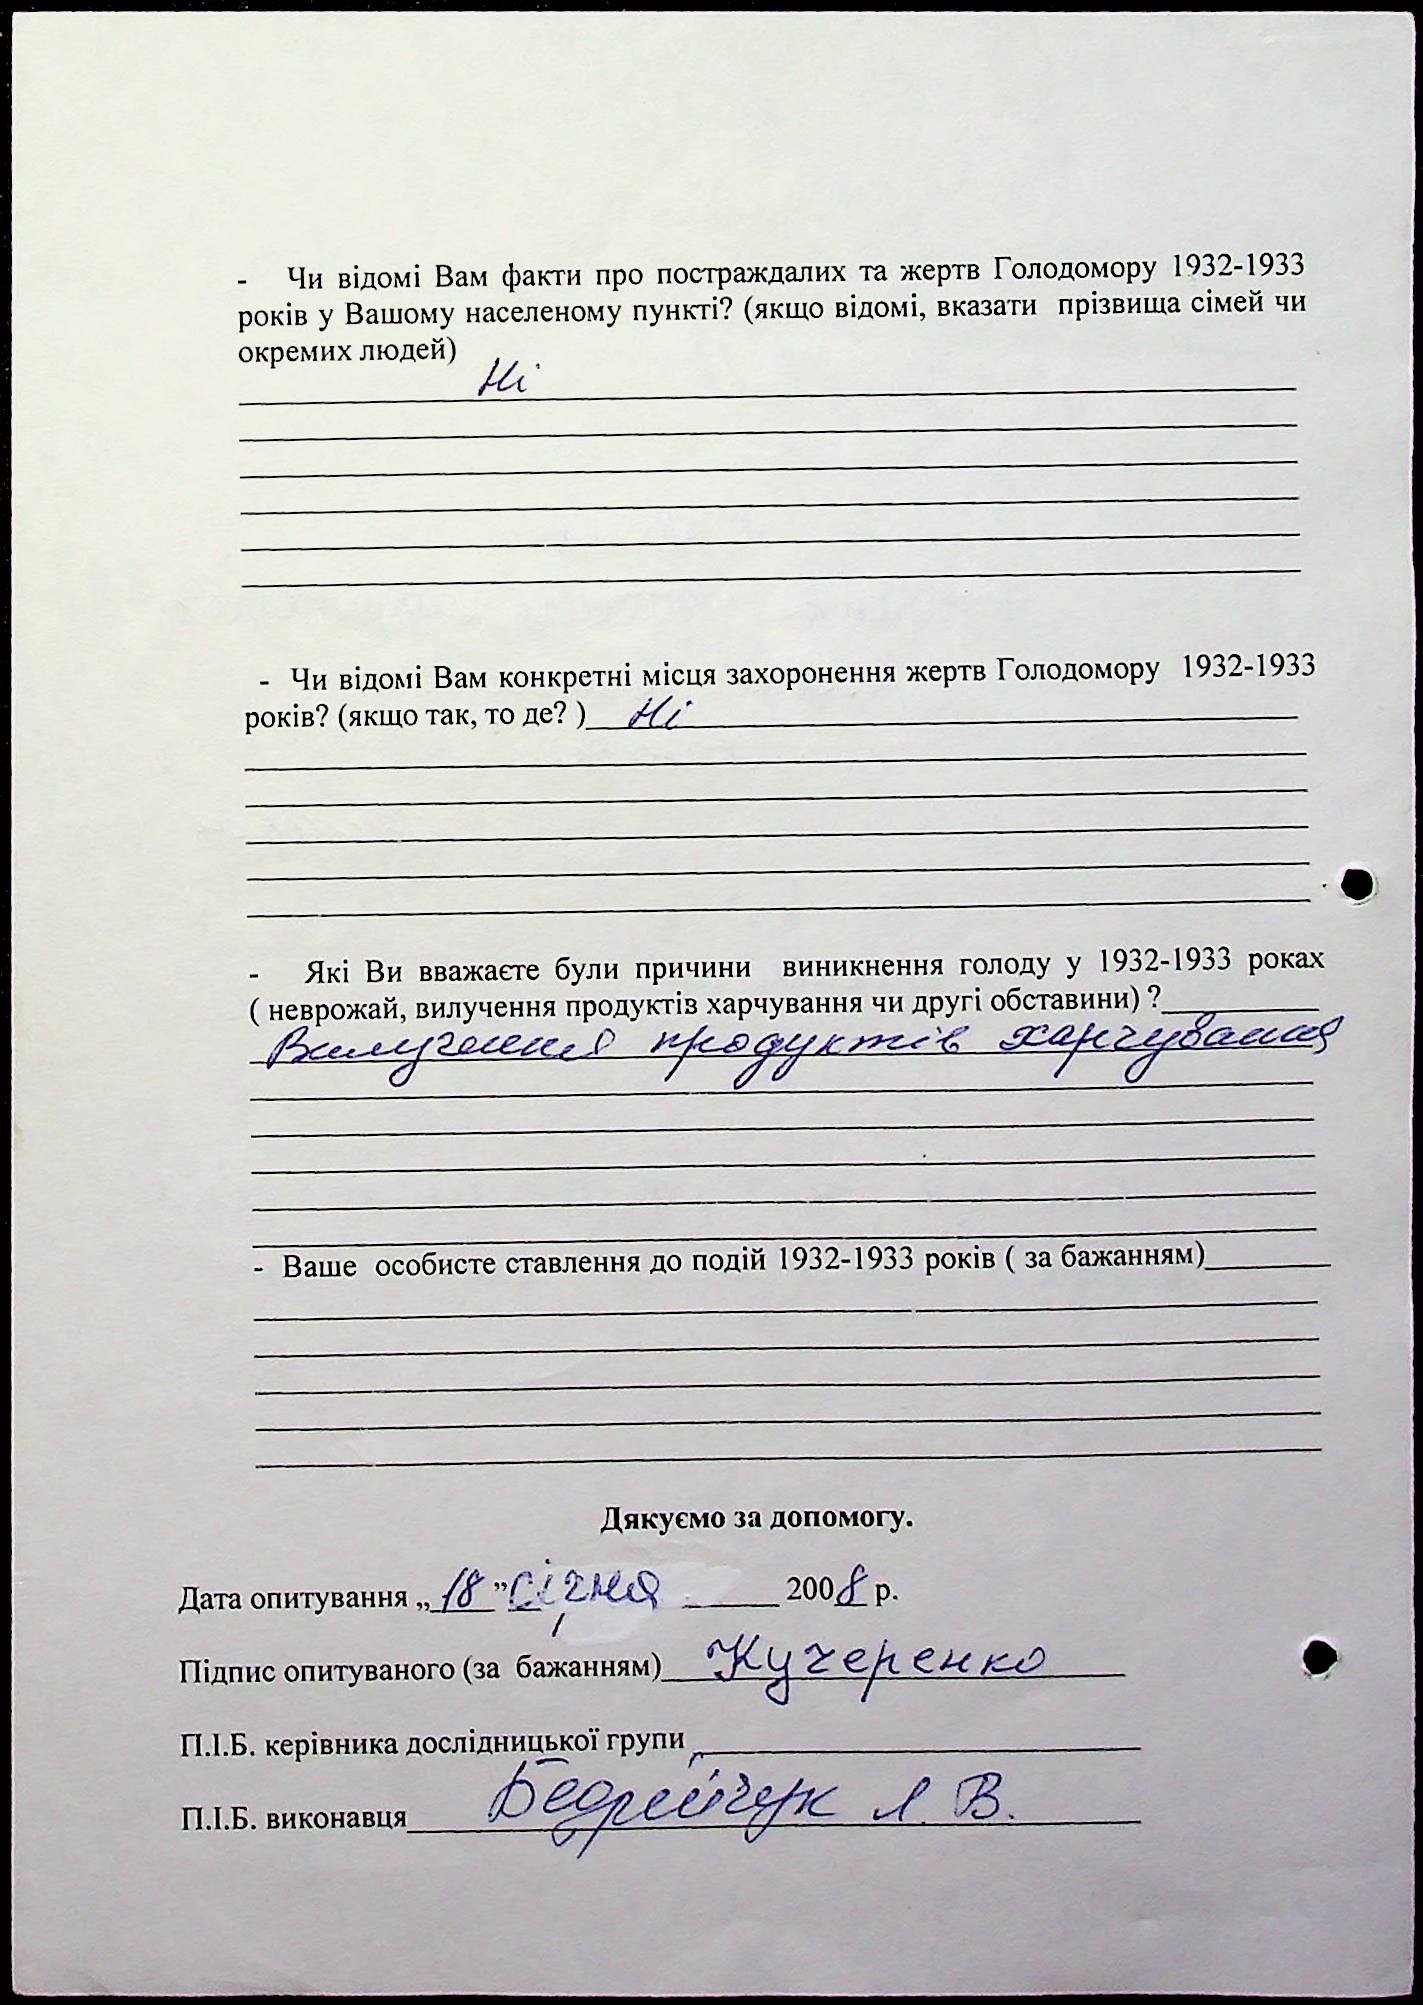 - Чи відомі Вам факти про постраждалих та жертв Голодомору 1932-1933
років у Вашому населеному пункті? (якщо відомі, вказати прізвища сімей чи
окремих людей)
Ні
- Чи відомі Вам конкретні місця захоронення жертв Голодомору 1932-1933
років? (якщо так, то де? ) Ні
- Які Ви вважаєте були причини виникнення голоду у 1932-1933 роках
( неврожай, вилучення продуктів харчування чи другі обставини) ?
Вилучення продуктів харчування
- Ваше особисте ставлення до подій 1932-1933 років ( за бажанням)
Дякуємо за допомогу.
Дата опитування „18” січня 2008 р.
Підпис опитуваного (за бажанням) Кучеренко
П.І.Б. керівника дослідницької групи
П.І.Б. виконавця Бедрейчук Л. В.